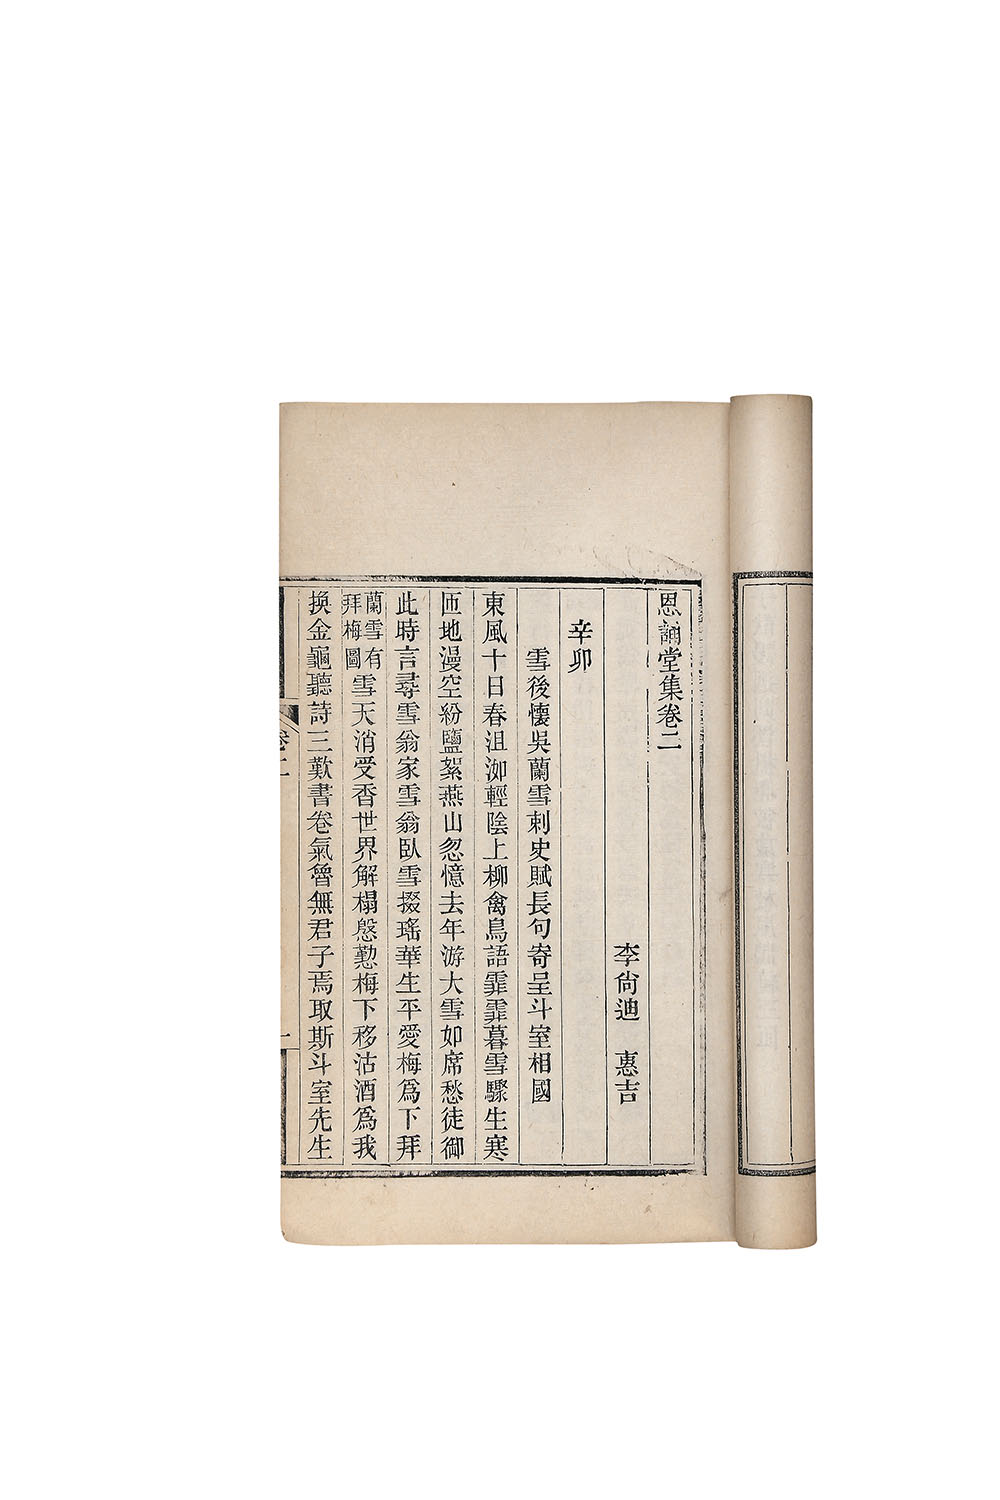 恩誦堂集卷二
李尙迪 惠吉
辛卯
雪後懷吳蘭雪刺史賦長句寄呈斗室相國
東風十日春沮洳輕陰上柳禽鳥語霏霏暮雪驟生寒
匝地漫空紛鹽絮燕山忽憶去年游大雪如席愁徒御
此時言尋雪翁家雪翁臥雪掇瑤華生平愛梅爲下拜
蘭雪有
拜梅圖
雪天消受香世界解榻慇懃梅下移沽酒爲我
換金龜聽詩三歎書卷氣魯無君子焉取斯斗室先生
卷二
一